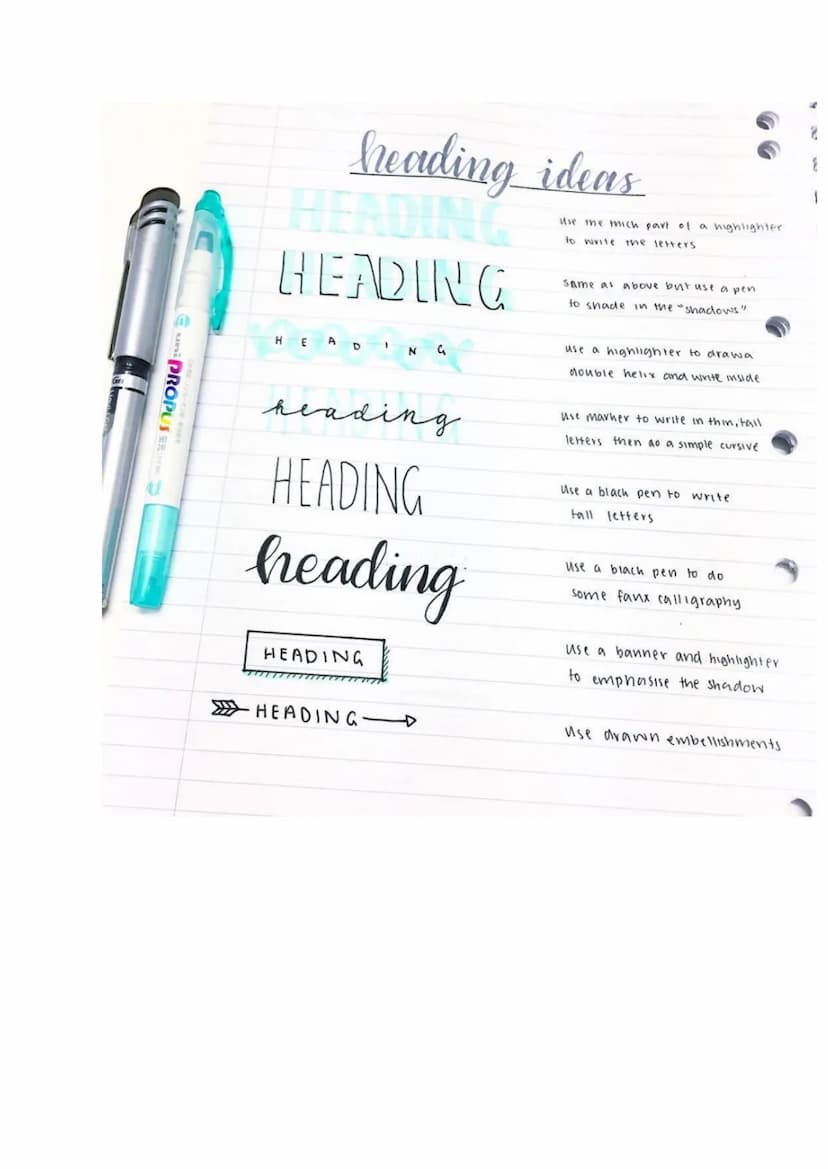 heading ideas
HEADING
use the thick part of a highlighter
to write the letters
HEADING
same as above but use a pen
to shade in the "shadows"
HEADING
use a highlighter to draw a
double helix and write inside
heading
use marker to write in thin, tall
letters then do a simple cursive
HEADING
use a black pen to write
tall letters
heading
use a black pen to do
some faux calligraphy
HEADING
use a banner and highlighter
to emphasise the shadow
HEADING
use drawn embellishments
uni PROPUS